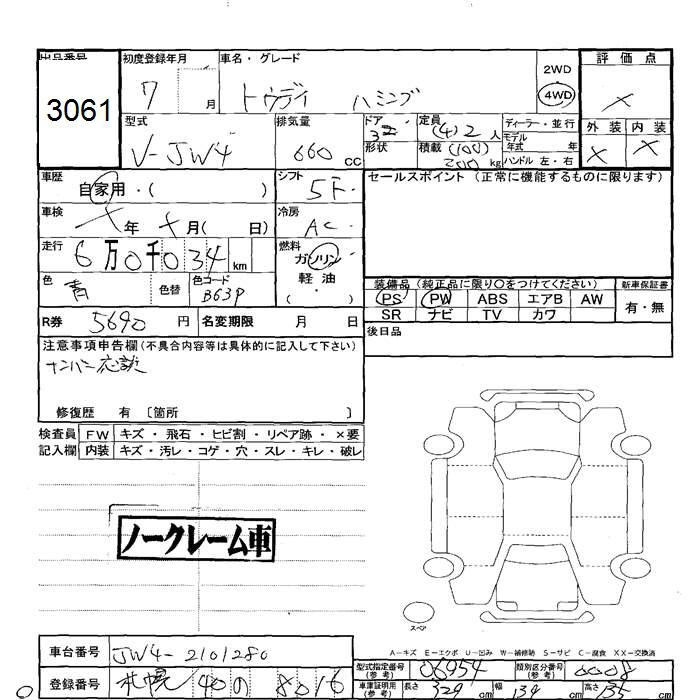 出品番号 初度登録年月 車名・グレード 評価点
3061 7 月 トゥデイ ハミング 2WD 4WD ×
型式 排気量 ドア 定員 ディーラー・並行 外装 内装
V-JW4 660 cc 3 (4) 2 人 モデル年式 年 × ×
形状 積載 (100) 200 kg ハンドル 左・右
車歴 自家用・( ) シフト 5F・ セールスポイント (正常に機能するものに限ります)
車検 × 年 × 月( 日) 冷房 AC・
走行 6万0千034 km 燃料 ガソリン 軽油 ・( )・
色 青 色替 色コード B63P
装備品 (純正品に限り〇をつけてください) 新車保証書
PS PW ABS エアB AW 有・無
SR ナビ TV カワ
R券 5690 円 名変期限 月 日 後日品
注意事項申告欄(不具合内容等は具体的に記入して下さい)
ナンバー応談
修復歴 有 〔箇所 〕
検査員 FW キズ・飛石・ヒビ割・リペア跡・×要
記入欄 内装 キズ・汚レ・コゲ・穴・スレ・キレ・破レ
ノークレーム車
スペア
A-キズ E-エクボ U-凹み W-補修跡 S-サビ C-腐食 XX-交換済
車台番号 JW4-2101280 型式指定番号(参考) 06954 類別区分番号(参考) 0008
登録番号 札幌 40 の 8016 車庫証明用(参考) 長さ 329 cm 幅 139 cm 高さ 135 cm